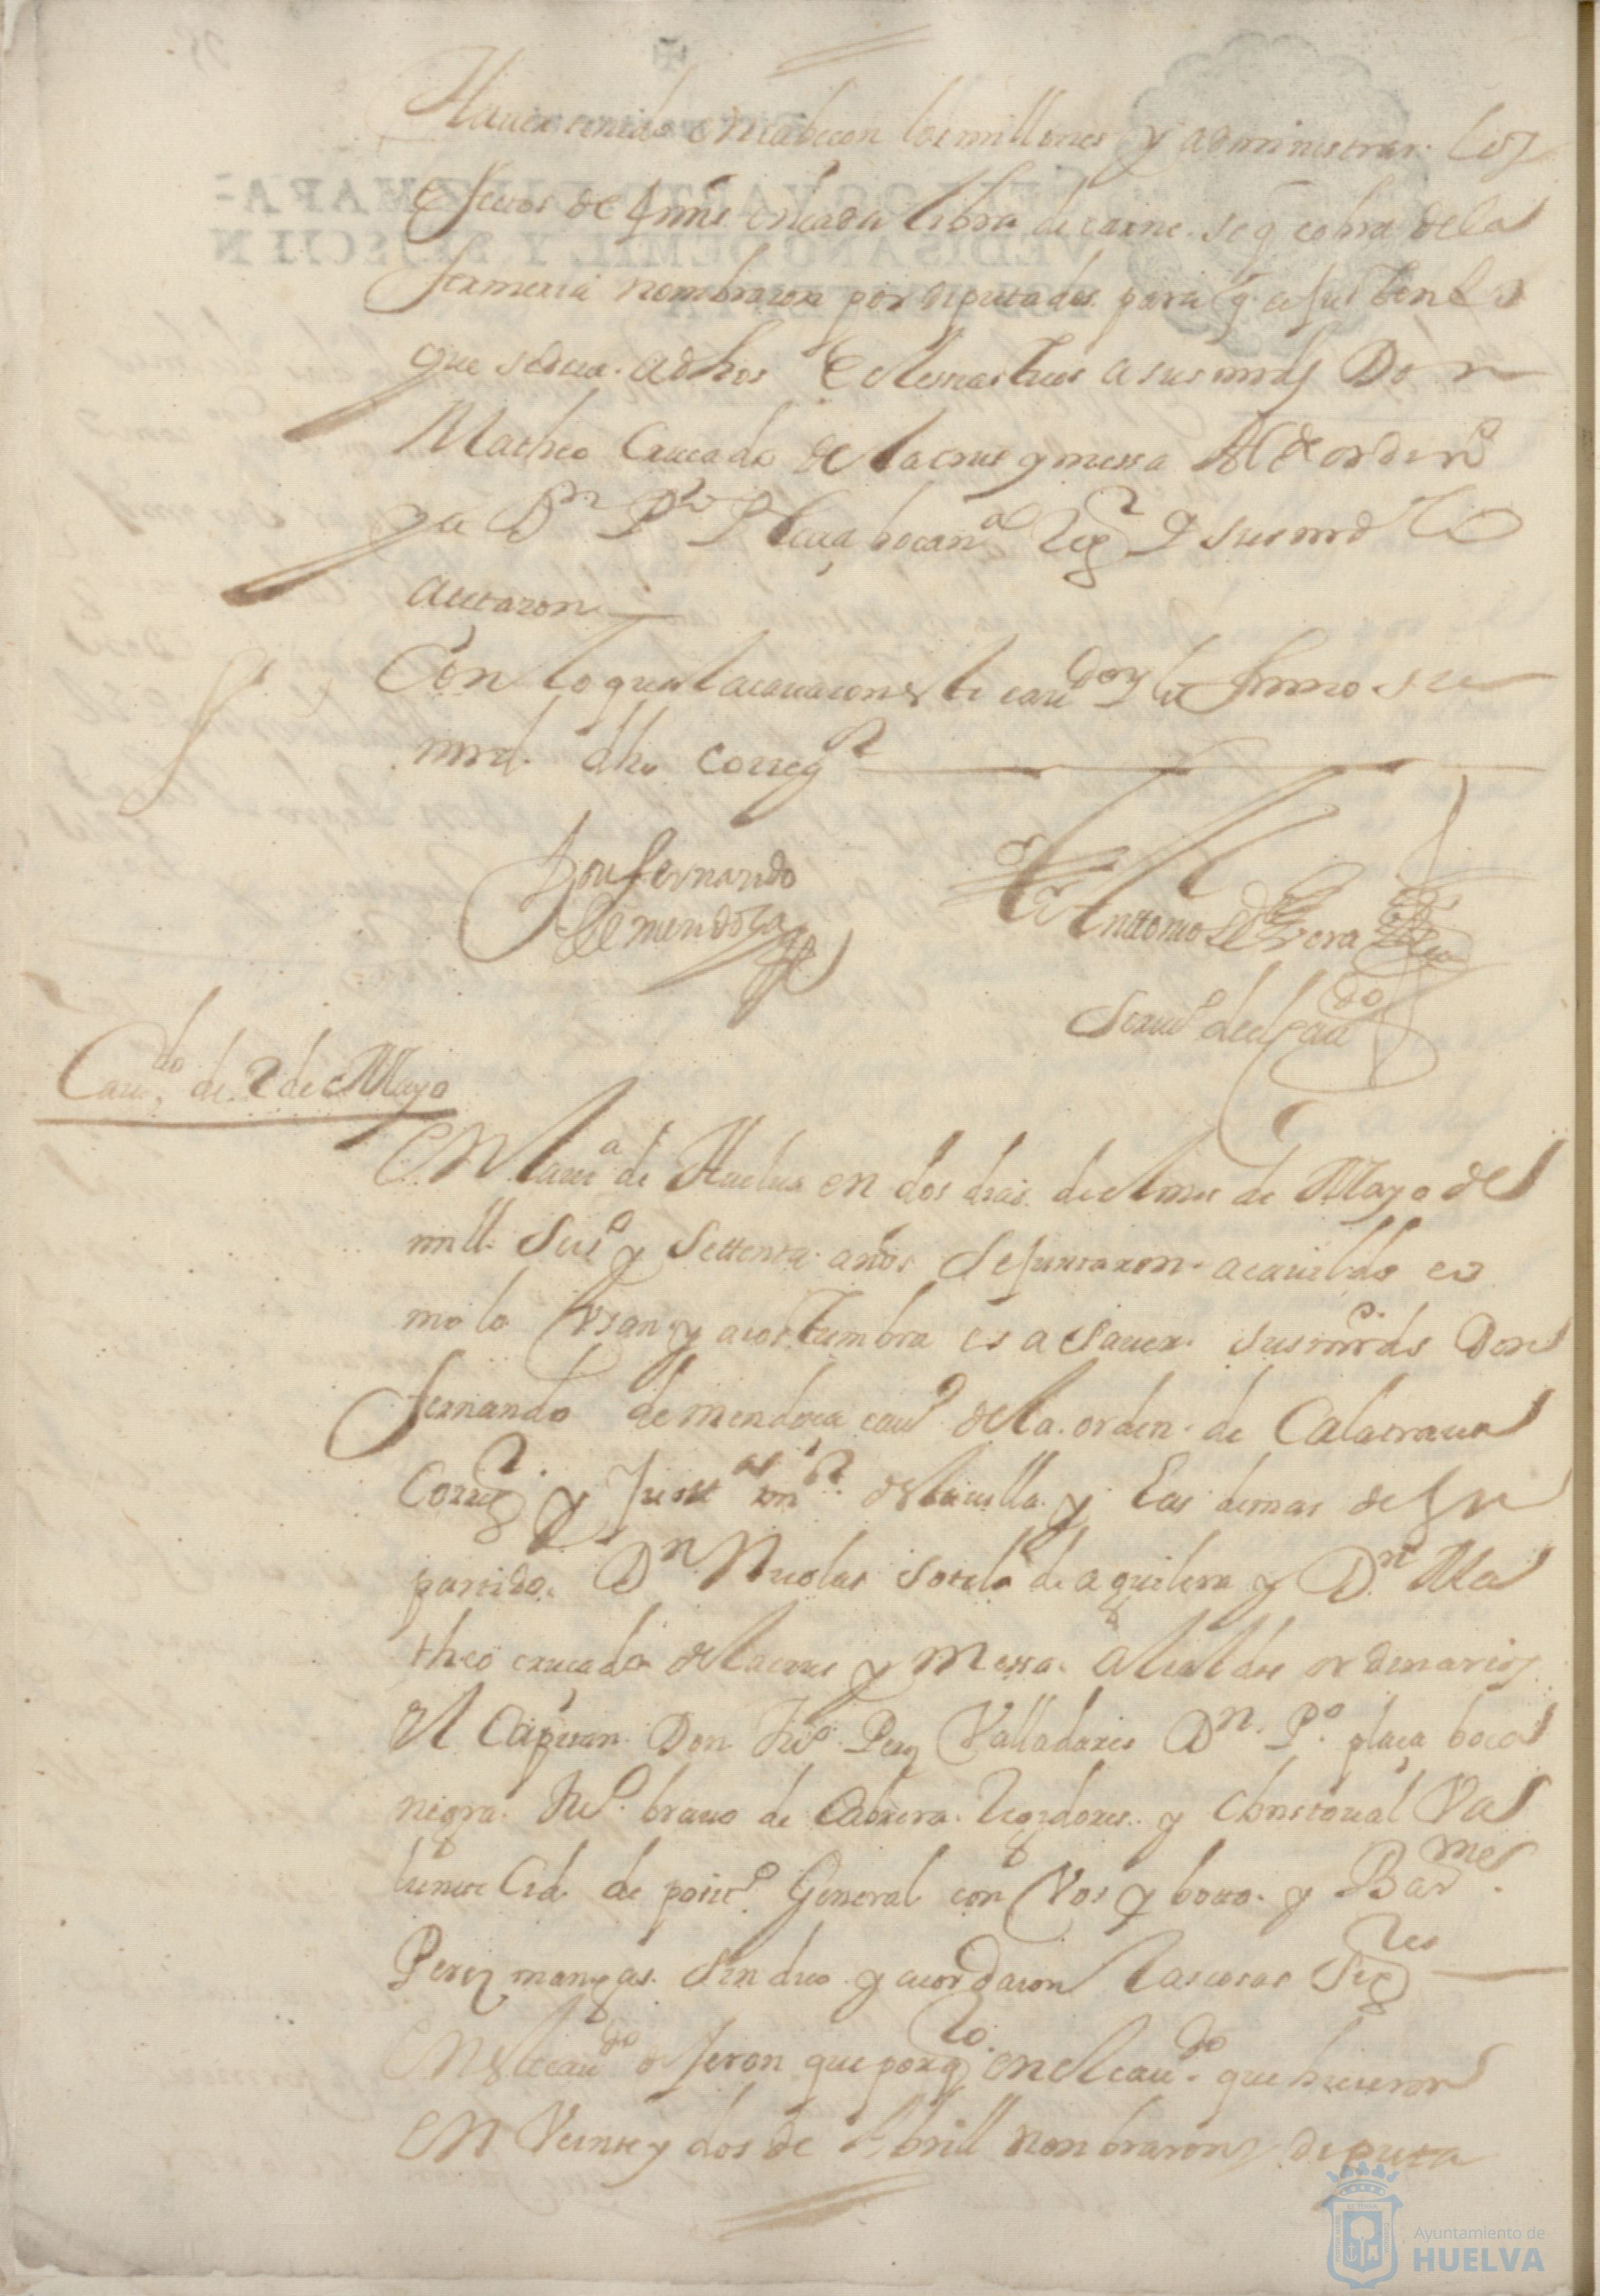 Hauer tenido en cabecon los millones y administrar los
efectos de 4 mrs en cada libra de carne se q cobra de la
fermeria nombraron por diputados para q ajusten lo
que se deua a dhos Eclesiasticos a sus mrds Don
Matheo Cruçado de la crus y messa Alcde ordinro
y a Dn Po Plaça bocana regr y sus mrd lo
autaron
Con lo qual acauaron este caudo y lo firmo su
mrd dho corregr
Don fernando
de mendoza
Anttonio de Vera
Scriuo del Caudo
Caudo de 2 de Mayo
En la ua de Huelua en dos dias del mes de Mayo de
mill Seiso y Settenta años Se juntaron a cauildo co
mo lo Usan y acostumbra es a Sauer sus mrds Don
fernando de mendoça cauo de la orden de Calatraua
Corregr y Justa mr de la uilla y las demas de su
partido Dn Nicolas sotelo de aguilera y Dn Ma
theo cruçado de la crus y Messa alcaldes ordinarios
el Capitan Don Juo Perez Valladares Dn Po plaça boca
negra Juo brauo de Cabrera regidores y Christoual Va
liente Cid de posito General con Vos y boto y Barme
Perez mangas Sindico y acordaron las cosas Sigtes
En este caudo dijeron que por q en el caudo que hicieron
En Veinte y dos de Abrill nonbraron diputa
Ayuntamiento de
HUELVA